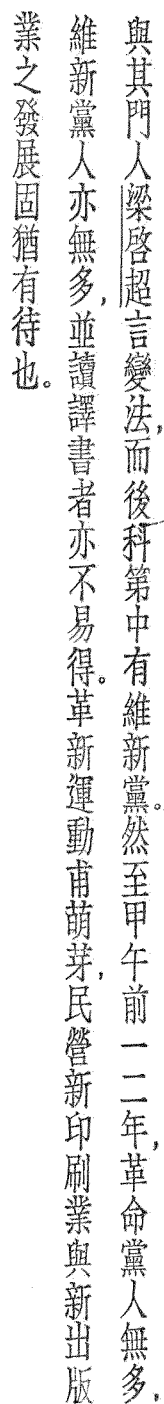 與其門人梁啓超言變法，而後科第中有維新黨。然至甲午前一二年，革命黨人無多，
維新黨人亦無多，並讀譯書者亦不易得。革新運動甫萌芽，民營新印刷業與新出版
業之發展固猶有待也。